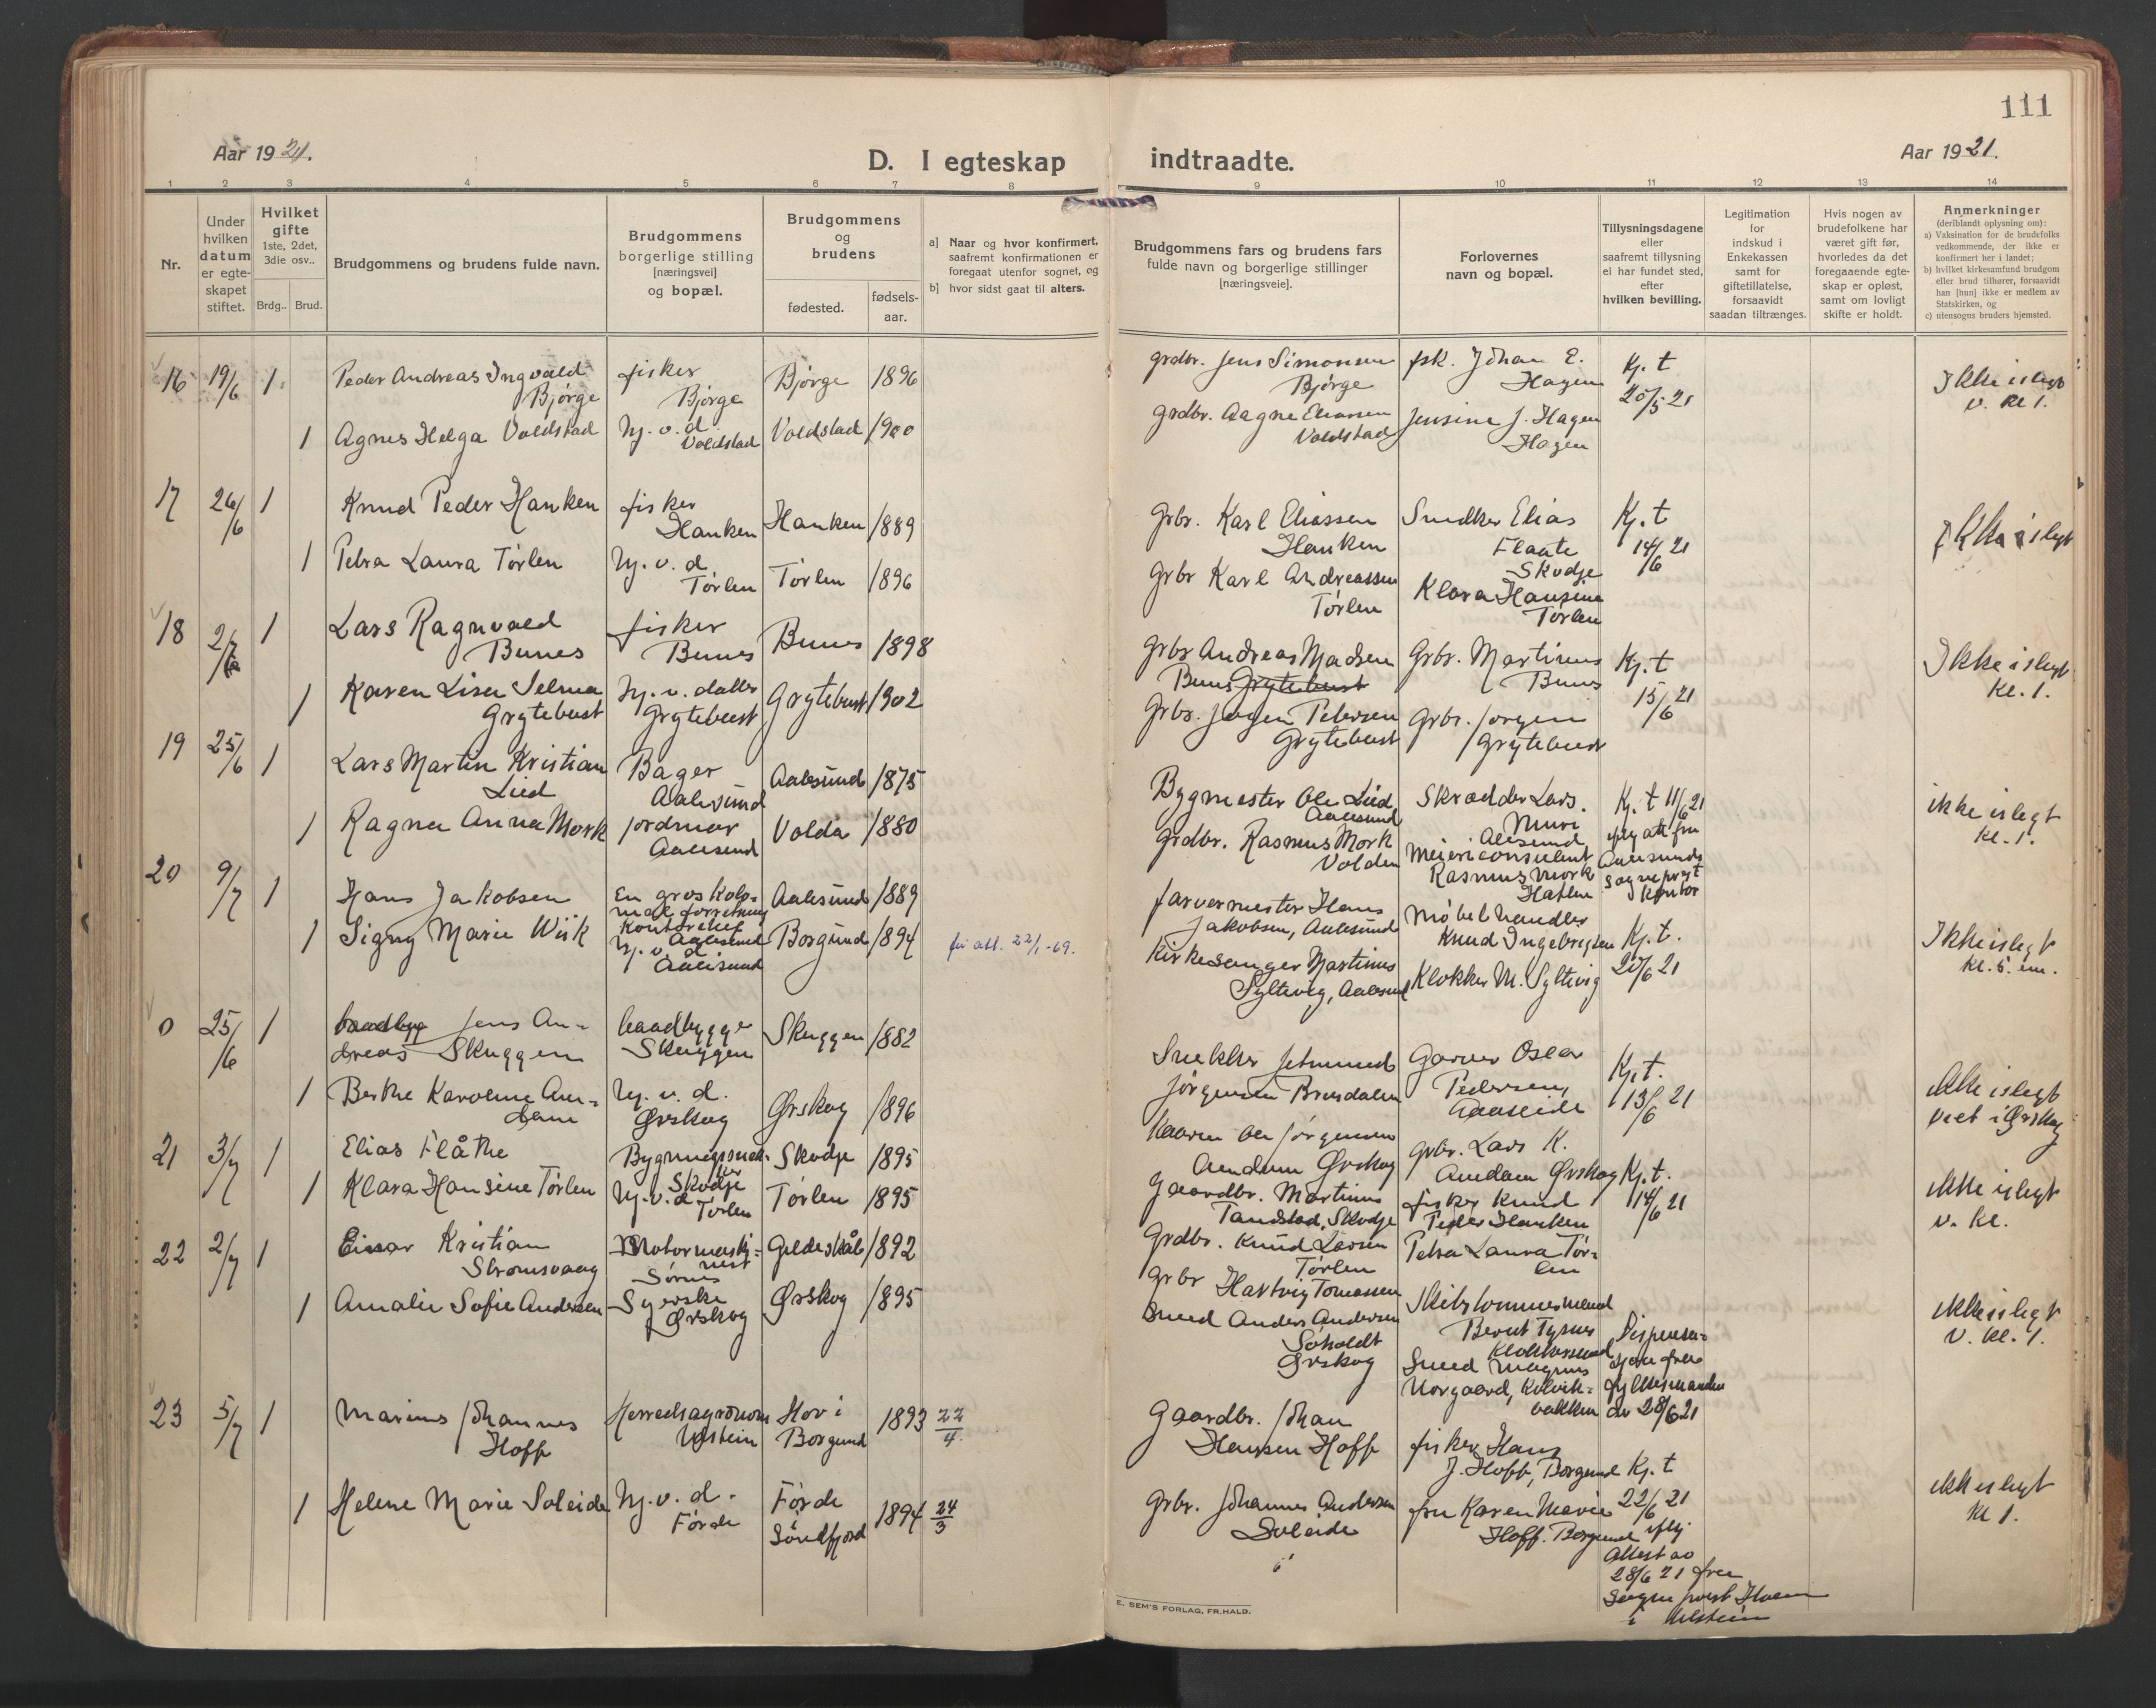 111
Aar 1921.
D. I egteskap
indtraadte.
Aar 1921.
1 2 3 4 5 6 7 8 9 10 11 12 13 14
Nr.
Under hvilken datum er egteskapet stiftet.
Hvilket gifte
1ste, 2det, 3die osv..
Brdg.. Brud.
Brudgommens og brudens fulde navn.
Brudgommens
borgerlige stilling
[næringsvei]
og bopæl.
Brudgommens
og
brudens
fødested.
fødsels-
aar.
a] Naar og hvor konfirmert,
saafremt konfirmationen er
foregaat utenfor sognet, og
b] hvor sidst gaat til alters.
Brudgommens fars og brudens fars
fulde navn og borgerlige stillinger
[næringsveie].
Forlovernes
navn og bopæl.
Tillysningsdagene
eller
saafremt tillysning
ei har fundet sted,
efter
hvilken bevilling.
Legitimation
for
indskud i
Enkekassen
samt for
giftetillatelse,
forsaavidt
saadan tiltrænges.
Hvis nogen av
brudefolkene har
været gift før,
hvorledes da det
foregaaende egte-
skap er opløst,
samt om lovligt
skifte er holdt.
Anmerkninger
(deriblandt oplysning om):
a) Vaksination for de brudefolks
vedkommende, der ikke er
konfirmert her i landet;
b) hvilket kirkesamfund brudgom
eller brud tilhører, forsaavidt
han [hun] ikke er medlem av
Statskirken, og
c) utensogns bruders hjemsted.
16 19/6 1 Peder Andreas Ingvald
Bjørge
fisker
Bjørge
Bjørge 1896
grdbr. Jens Simonsen
Bjørge
fsk. Johan E.
Hagen
Kj. t
20/5 21
Ikke i slegt
v. kl 1.
1 Agnes Helga Voldstad
hj. v. d
Voldstad
Voldstad 1900
grdbr. Aagne Eliassen
Voldstad
Jensine J. Hagen
Hagen
17 26/6 1 Knud Peder Hanken
fisker
Hanken
Hanken 1889
grbr. Karl Eliassen
Hanken
Snedker Elias
Flaate
Skodje
Kj. t
14/6 21
Ikke i slegt
1 Petra Laura Tørlen
hj. v. d
Tørlen
Tørlen 1896
Grbr Karl Andreassen
Tørlen
Klara Hansine
Tørlen
18 2/7 1 Lars Ragnvald
Bunes
fisker
Bunes
Bunes 1898
grbr Andreas Madsen
Bunes Grytebust
Grbr. Martinus
Bunes
Kj. t
15/6 21
Ikke i slegt
kl. 1.
1 Karen Lisa Selma
Grytebust
hj. v. datter
Grytebust
Grytebust 1902
Grbr. Jørgen Petersen
Grytebust
Grbr. Jørgen
Grytebust
19 25/6 1 Lars Martin Kristian
Lied
Bager
Aalesund
Aalesund 1875
Bygmester Ole Lied
Aalesund
Skrædder Lars.
Muri
Alesund
Kj. t 11/6 21
iflg att fra
Aalesunds
sogneprest
kontor
ikke i slegt
kl. 1.
1 Ragna Anna Mork
jordmor
Aalesund
Volda 1880
grdbr. Rasmus Mork
Volden
Meierikonsulent
Rasmus Mork
Hatlen
20 9/7 1 Hans Jakobsen
En gros kolo-
nial forretning
Kontorchef
Aalesund
Aalesund 1889
farvermester Hans
Jakobsen, Aalesund
Møbelhandler
Knud Ingebrigtsen
Kj. t.
20/6 21
Ikke i slegt
kl. 5. em.
1 Signy Marie Wiik
hj. v. d
Aalesund
Borgund 1894
få att. 22/1-69.
Kirkesanger Martinus
Syltevig, Aalesund
Klokker M. Syltevig
0 25/6 1 baadbyg Jens An-
dreas Skuggen
baadbygger
Skuggen
Skuggen 1882
Snekker Jetmund
Jørgensen Brusdalen
Garver Oscar
Pedersen,
Aaseide
Kj. t.
13/6 21
Ikke i slegt
viet i Ørskog
1 Berthe Karoline Am-
dam
hj. v. d.
Ørskog
Ørskog 1896
kaarm Ole Jørgensen
Amdam Ørskog
grbr. Lars K.
Amdam Ørskog
21 3/7 1 Elias Flåthe
Bygningssnek-
ker
Skodje
Skodje 1895
gaardbr. Martinus
Tandstad, Skodje
fisker Knud
Peder Hanken
Kj. t.
14/6 21
ikke i slegt
v. kl.
1 Klara Hansine Tørlen
hj. v. d
Tørlen
Tørlen 1895
Grdbr. Knud Larsen
Tørlen
Petra Laura Tør-
len
22 2/7 1 Einar Kristian
Strømsvaag
Motormaski-
nist
Sørnes
Gildeskål 1892
grbr Hartvig Tomassen
Skibstømmermand
Bernt Tysnes
Klokkersund
Dispensa-
sjon fra
fylkesmanden
av 28/6 21
ikke i slegt
v. kl. 1.
1 Amalie Sofie Andersen
Syerske
Ørskog
Ørskog 1895
Smed Anders Andersen
Søholdt
Ørskog
Smed Magnus
Norgaard, Kolvik-
bakken
23 5/7 1 Marius Johannes
Hoff
Herredsagronom
Ulstein
Hov i
Borgund
1893 22/4
Gaardbr. Johan
Hansen Hoff
fisker Hans
J. Hoff, Borgund
Kj. t
22/6 21
iflg
Attest av
28/6 21 fra
Sogneprest Hoem
i Ulstein
ikke i slegt
kl 1.
1 Helene Marie Soleide
hj. v. d.
Førde
Førde
i
Søndfjord
1894 24/3
Grbr. Johannes Andersen
Soleide
fru Karen Marie
Hoff. Borgund
E. SEM'S FORLAG, FR.HALD.